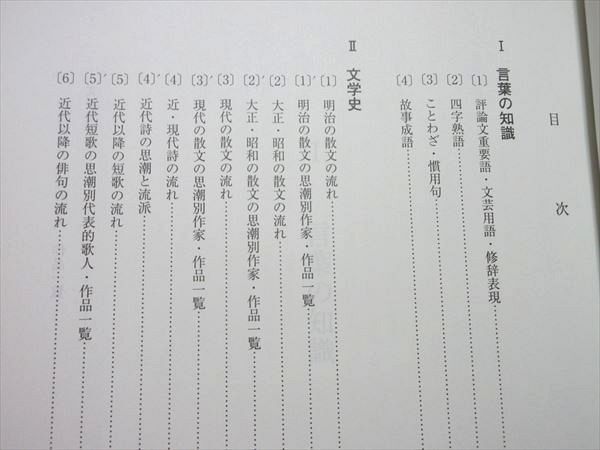 目次
Ⅰ 言葉の知識
〔1〕 評論文重要語・文芸用語・修辞表現
〔2〕 四字熟語
〔3〕 ことわざ・慣用句
〔4〕 故事成語
Ⅱ 文学史
〔1〕 明治の散文の流れ
〔1〕′ 明治の散文の思潮別作家・作品一覧
〔2〕 大正・昭和の散文の流れ
〔2〕′ 大正・昭和の散文の思潮別作家・作品一覧
〔3〕 現代の散文の流れ
〔3〕′ 現代の散文の思潮別作家・作品一覧
〔4〕 近・現代詩の流れ
〔4〕′ 近代詩の思潮と流派
〔5〕 近代以降の短歌の流れ
〔5〕′ 近代短歌の思潮別代表的歌人・作品一覧
〔6〕 近代以降の俳句の流れ